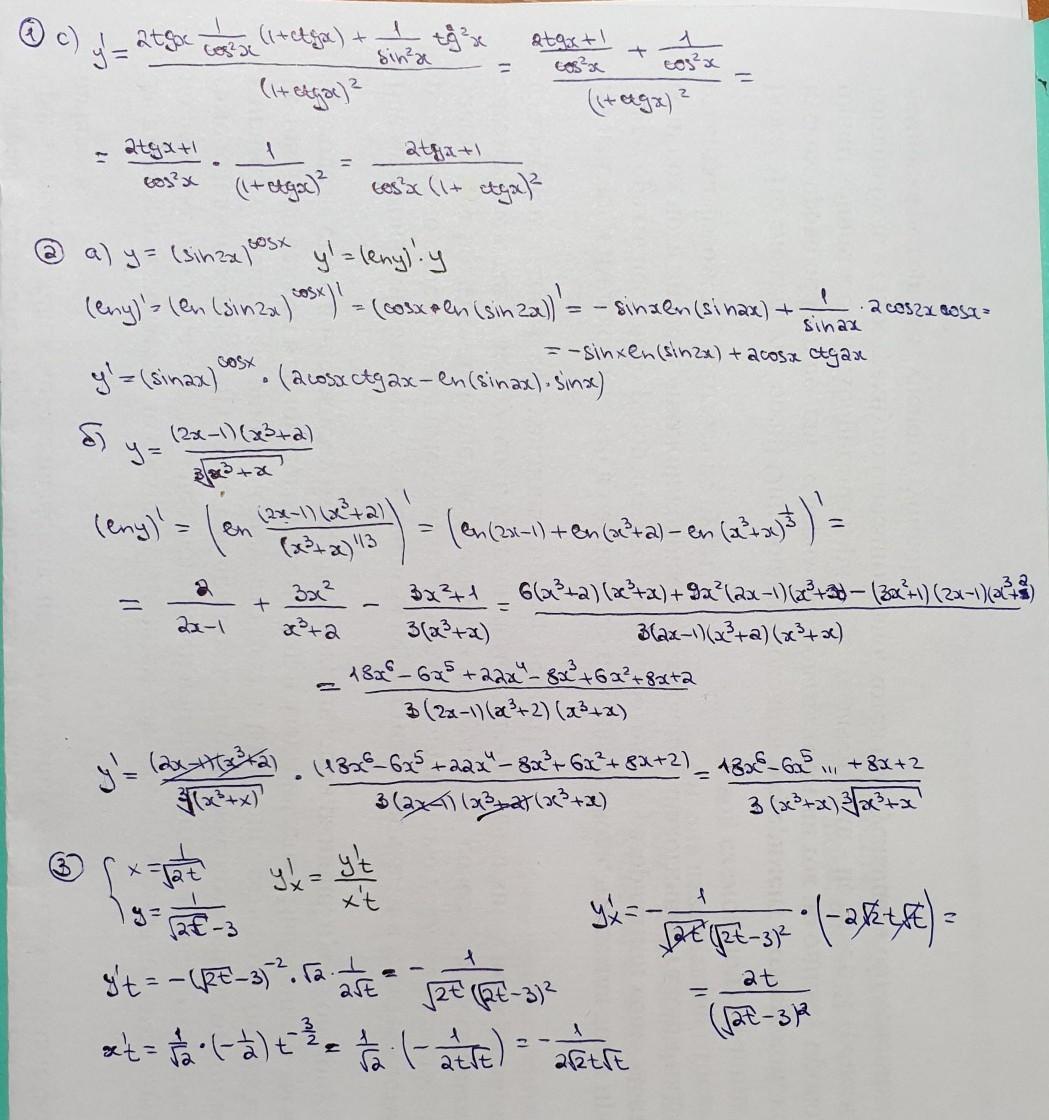 ① c) y' = (2tgx 1/cos²x (1+ctgx) + 1/sin²x tg²x)/(1+ctgx)² = ((2tgx+1)/cos²x + 1/cos²x)/(1+ctgx)² =
= (2tgx+1)/cos²x · 1/(1+ctgx)² = (2tgx+1)/(cos²x (1+ ctgx)²)
② a) y = (sin2x)^cosx y' = (lny)' · y
(lny)' = (ln(sin2x)^cosx)' = (cosx · ln(sin2x))' = - sinx ln(sin2x) + 1/sin2x · 2cos2x cosx =
= -sinx ln(sin2x) + 2cosx ctg2x
y' = (sin2x)^cosx · (2cosx ctg2x - ln(sin2x) · sinx)
б) y = (2x-1)(x³+2)/∛(x³+x)
(lny)' = (ln (2x-1)(x³+2)/(x³+x)^(1/3))' = (ln(2x-1) + ln(x³+2) - ln(x³+x)^(1/3))' =
= 2/(2x-1) + 3x²/(x³+2) - (3x²+1)/(3(x³+x)) = (6(x³+2)(x³+x) + 9x²(2x-1)(x³+x) - (3x²+1)(2x-1)(x³+2))/(3(2x-1)(x³+2)(x³+x))
= (18x⁶ - 6x⁵ + 22x⁴ - 8x³ + 6x² + 8x + 2)/(3(2x-1)(x³+2)(x³+x))
y' = (2x-1)(x³+2)/∛(x³+x) · (18x⁶ - 6x⁵ + 22x⁴ - 8x³ + 6x² + 8x + 2)/(3(2x-1)(x³+2)(x³+x)) = (18x⁶ - 6x⁵ ... + 8x + 2)/(3(x³+x)∛(x³+x))
③ { x = 1/√(2t) y'x = y't/x't
y = 1/(√(2t) - 3)
y'x = - 1/(√(2t)(√(2t) - 3)²) · (-2√2 t√t) =
= 2t/(√(2t) - 3)²
y't = -(√(2t) - 3)⁻² · √2 · 1/(2√t) = - 1/(√(2t)(√(2t) - 3)²)
x't = 1/√2 · (-1/2) t^(-3/2) = 1/√2 · (- 1/(2t√t)) = - 1/(2√2 t√t)